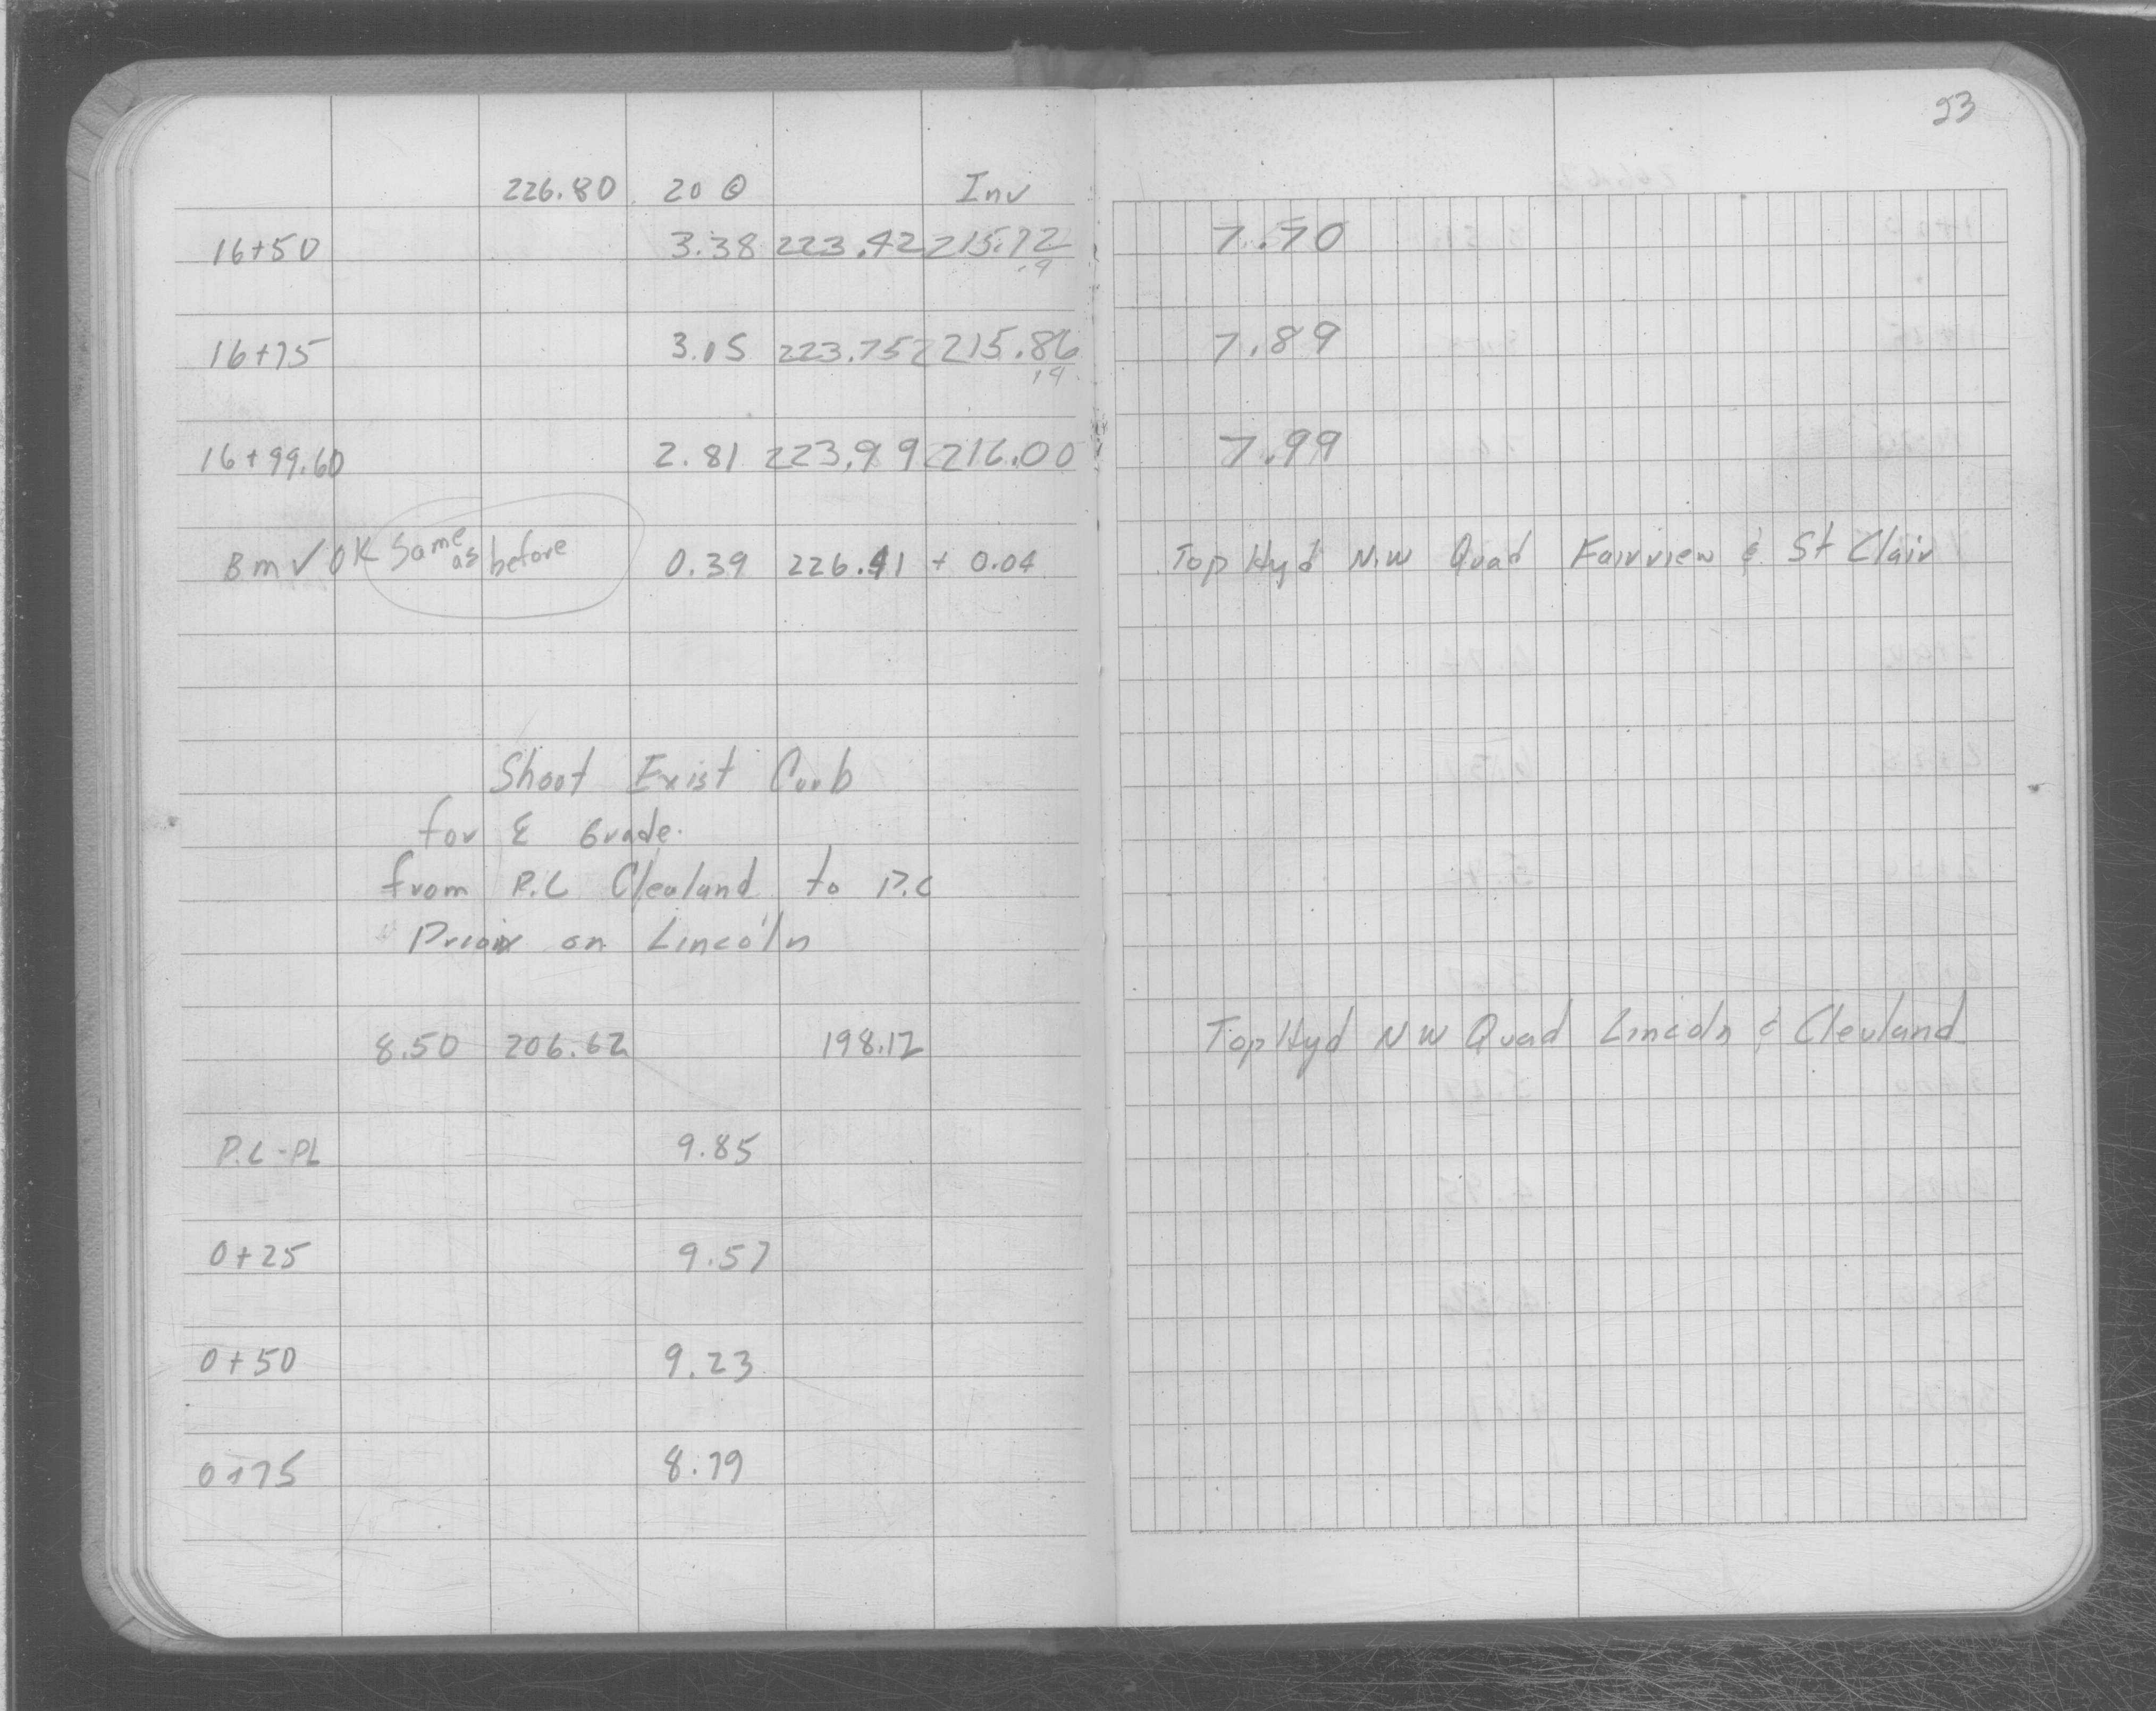 53
226.80 20 © Inv
16+50 3.38 223.42 215.72 7.70
.14
16+75 3.05 223.75 215.86 7.89
.14
16+99.60 2.81 223.99 216.00 7.99
Bm ✓ OK Same as before 0.39 226.41 + 0.04 Top Hyd N.W Quad Fairview & St Clair
Shoot Exist Curb
for & Grade.
from P.C Clealand to P.C
Prior on Lincoln
8.50 206.62 198.12 Top Hyd NW Quad Lincoln & Clevland
P.C-PL 9.85
0+25 9.57
0+50 9.23
0+75 8.79